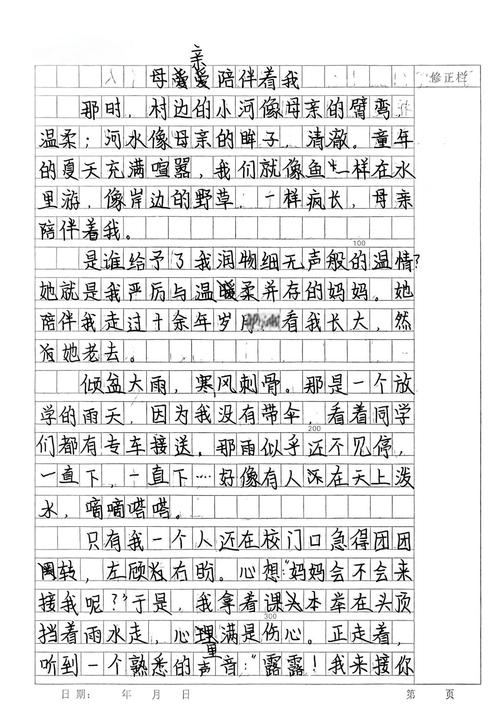 亲
母爱爱陪伴着我
修正栏
那时,村边的小河像母亲的臂弯,
温柔;河水像母亲的眸子,清澈。童年
的夏天充满喧嚣,我们就像鱼一样在水
里游,像岸边的野草,一样疯长,母亲
陪伴着我。
100
是谁给予了我润物细无声般的温情?
她就是我严厉与温暖柔并存的妈妈。她
陪伴我走过十余年岁月 看我长大,然
她老去。
倾盆大雨,寒风刺骨。那是一个放
学的雨天,因为我没有带伞,看着同学
200
们都有专车接送,那雨似乎还不见停,
一直下,一直下……好像有人在天上泼
水,嘀嘀嗒嗒。
只有我一个人还在校门口急得团团
转,左顾右盼。心想:“妈妈会不会来
接我呢?”于是,我拿着课本举在头顶
300
挡着雨水走,心理满是伤心。正走着,
里
听到一个熟悉的声音:“露露!我来接你
日期: 年 月 日 第 页